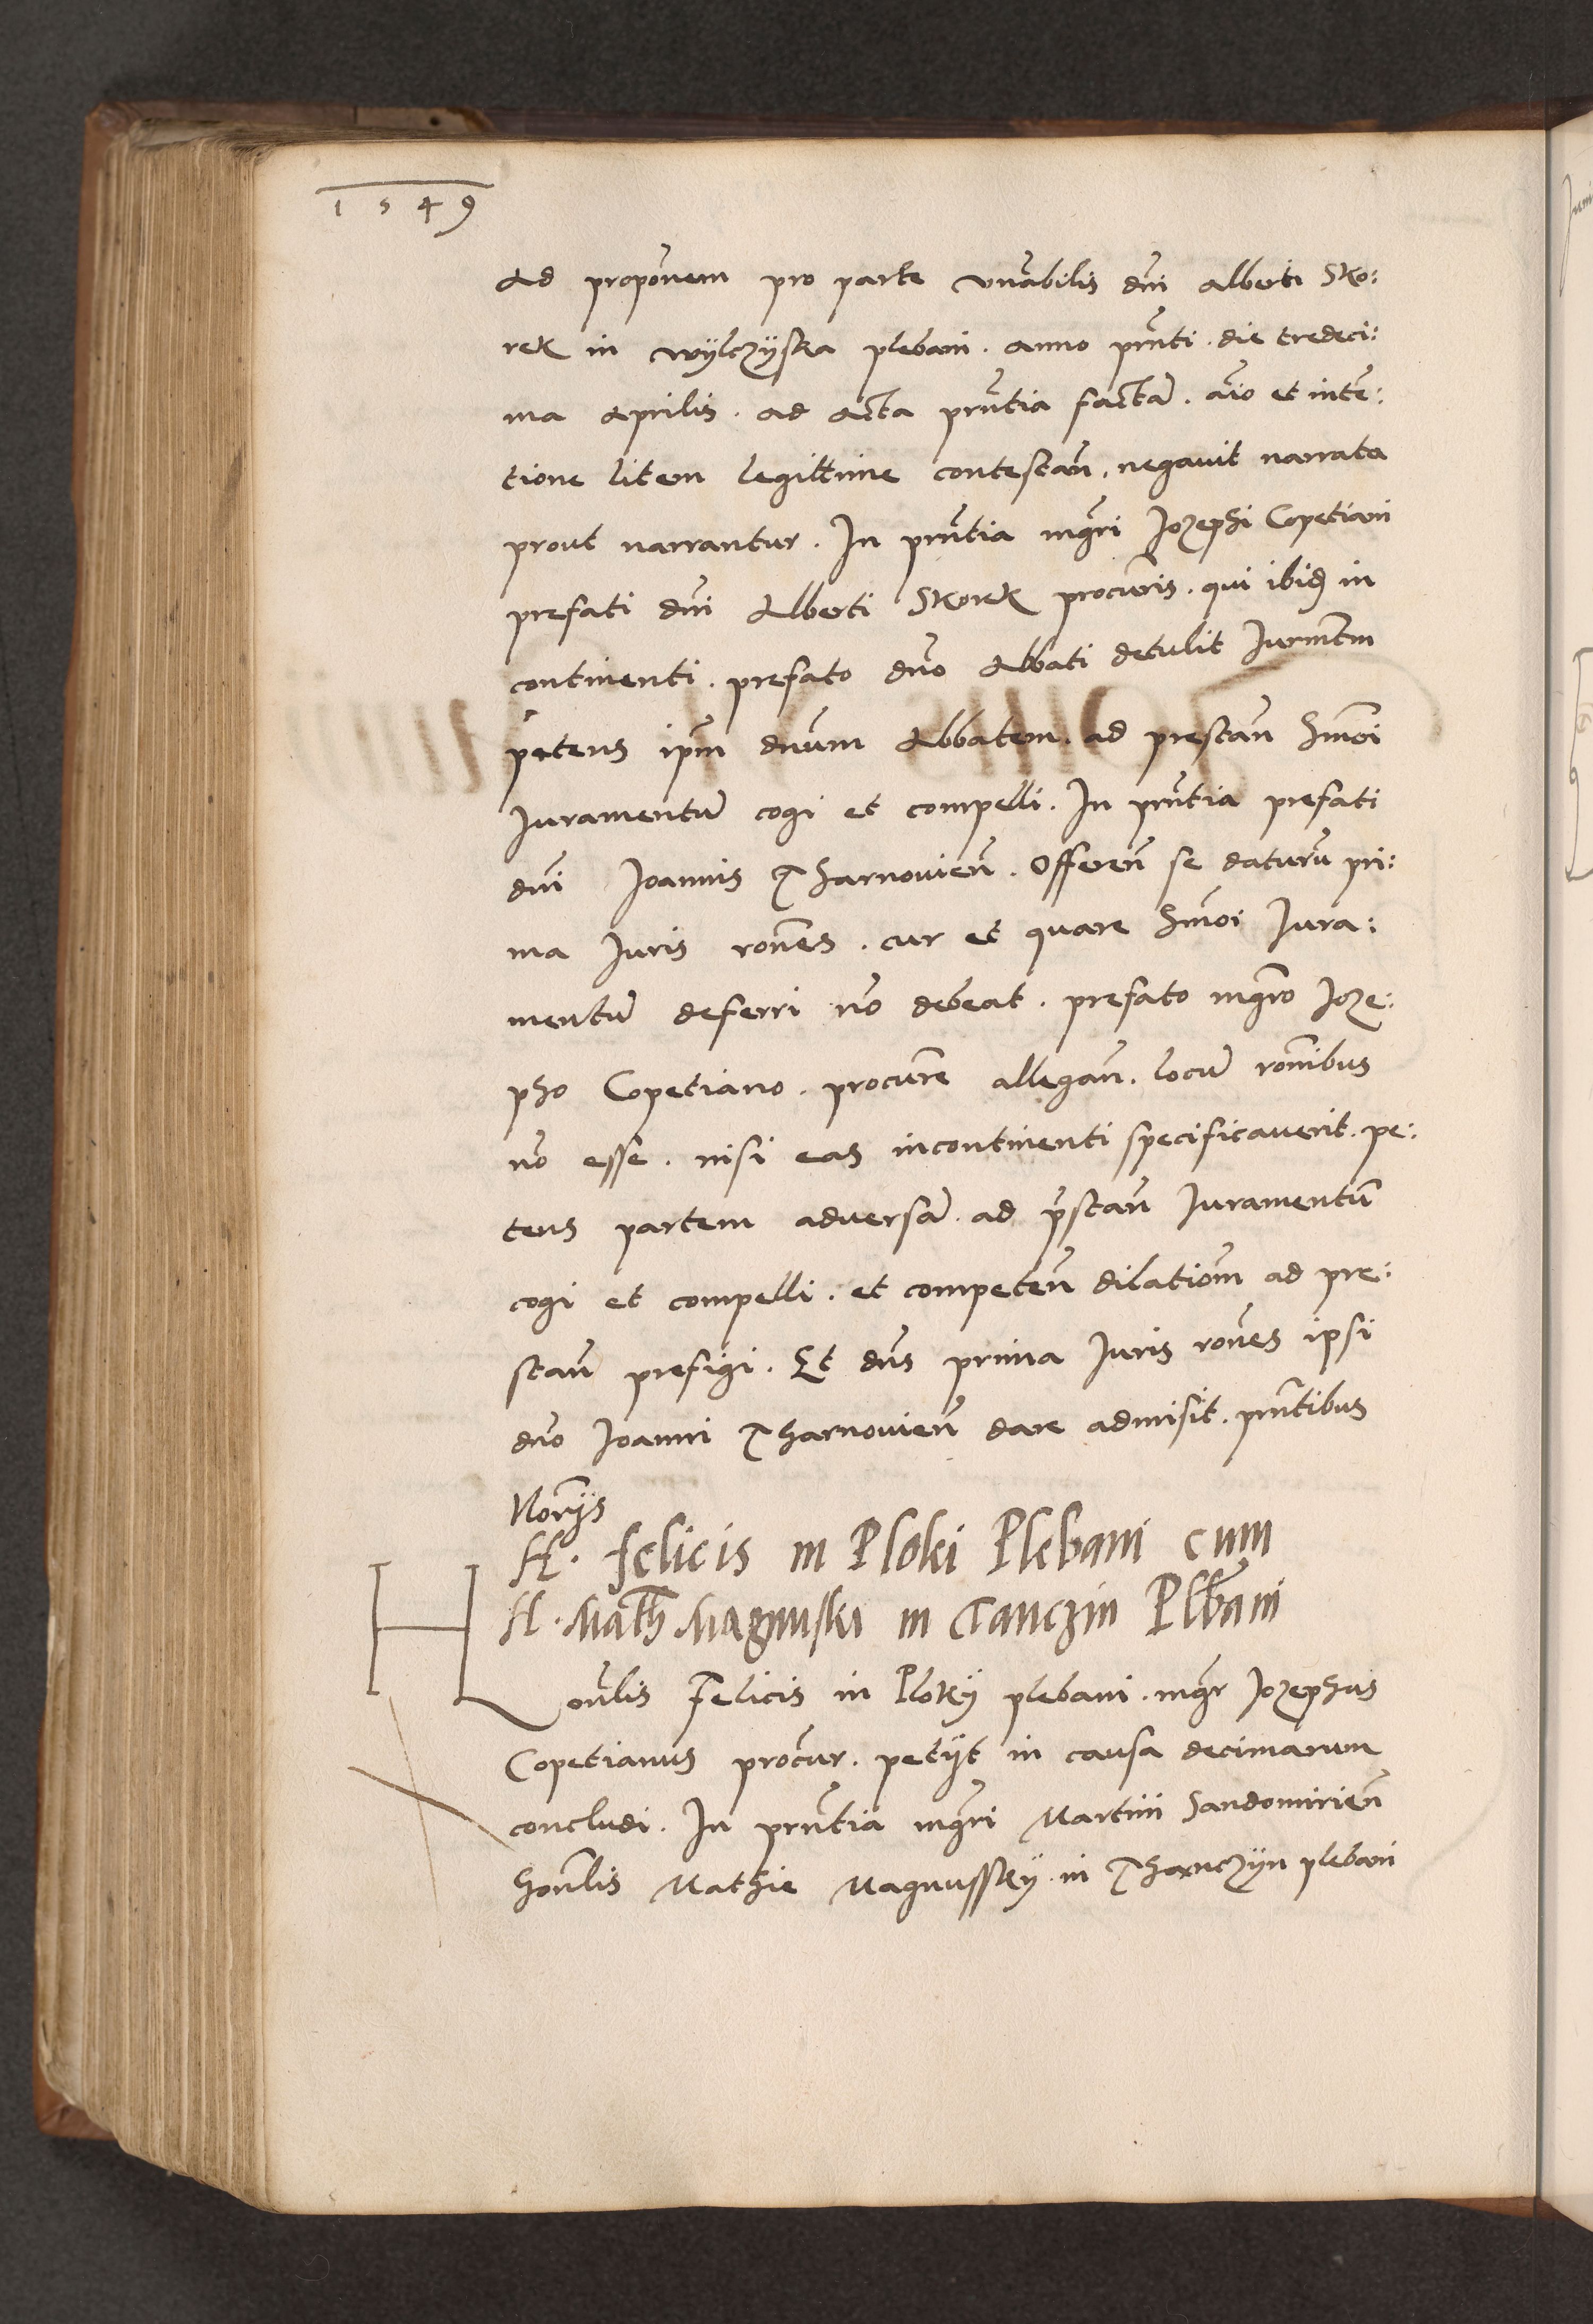 1549
Ad propõnem pro parte vnãbilis dñi Alberti Sko:
rek in Wylczyska plebani. anno pñti. die tredeci:
ma Aprilis. ad Acta pñtia factã. aĩo et intẽ:
tione litem legittime contestañ. negauit narrata
prout narrantur. In pñtia mgri Jozephi Copetiani
prefati dñi Alberti Skorek procuris. qui ibid in
continenti. prefato dño Abbati detulit Jurmtm
petens ipm dnum Abbatem. ad prestañ hmoi
Juramentũ cogi et compelli. In pñtia prefati
dñi Joannis Tharnovieñ. Offereñ se daturũ pri:
ma Juris rones. cur et quare hmoi Jura:
mentũ deferri nõ debeat. prefato mgro Joze:
pho Copetiano. procure allegañ. locũ ronibus
nõ esse. nisi eas incontinenti specificauerit. pe:
tens partem adversã. ad p̃stañ Juramentũ
cogi et compelli. et competeñ dilationẽ ad pre:
stañ prefigi. Et dñs prima Juris rones ipsi
dño Joanni Tharnovieñ dare admisit. pñtibus
Norijs
H. Felicis in Ploki Plebani cum
H. Math Magnuski in Tanczin Plbani
Honlis Felicis in Ploky plebani. mgr Jozephus
Copetianus procur. petijt in causa decimarum
concludi. In pñtia mgri Martini Sandomirieñ
honlis Mathie Magnussky. in Tharnczyn plebani